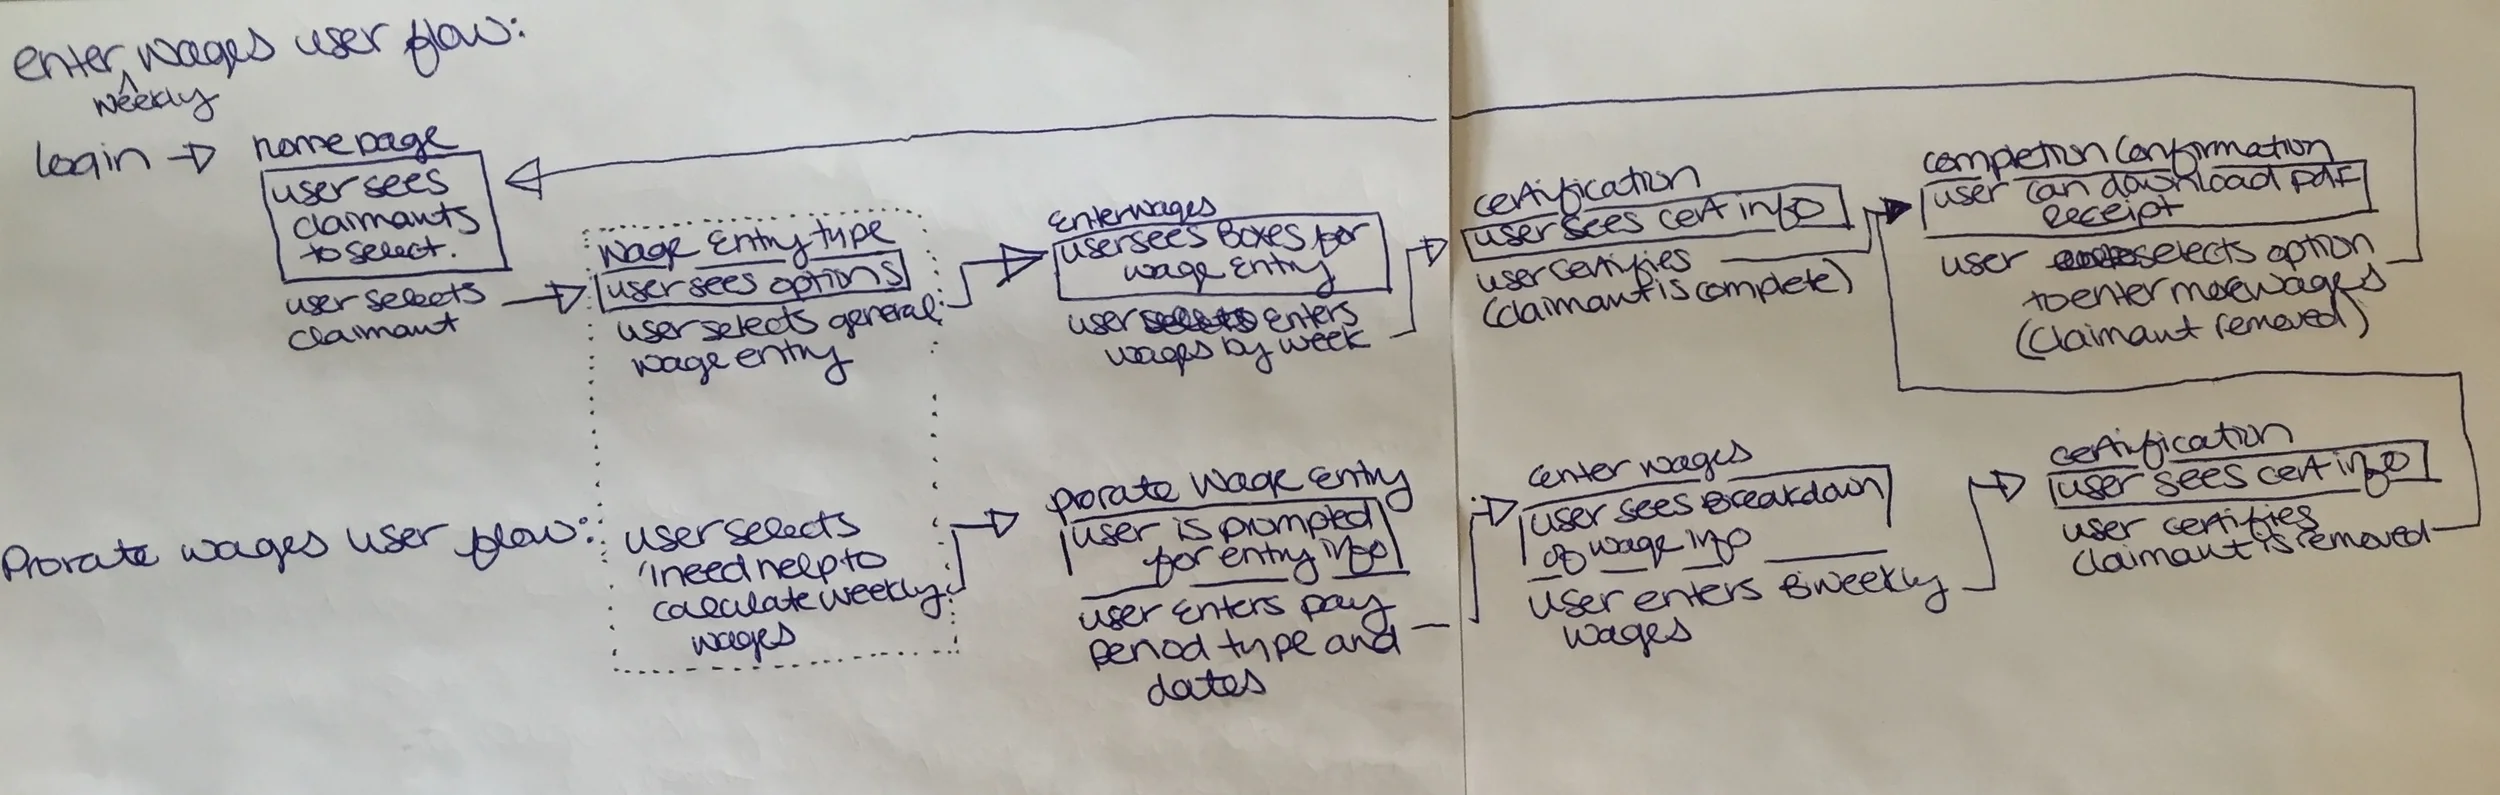 enter wages user flow:
weekly
login
homepage
user sees
claimants
to select.
user selects
claimant
wage entry type
user sees options
user selects general
wage entry
enter wages
user sees boxes for
wage entry
user enters
wages by week
certification
user sees cert info
user certifies
(claimant is complete)
completion confirmation
user can download pdf
receipt
user selects option
to enter more wages
(claimant removed)
Prorate wages user flow:
user selects
'I need help to
calculate weekly
wages
prorate wage entry
user is prompted
for entry info
user enters pay
period type and
dates
enter wages
user sees breakdown
of wage info
user enters biweekly
wages
certification
user sees cert info
user certifies
claimant is removed